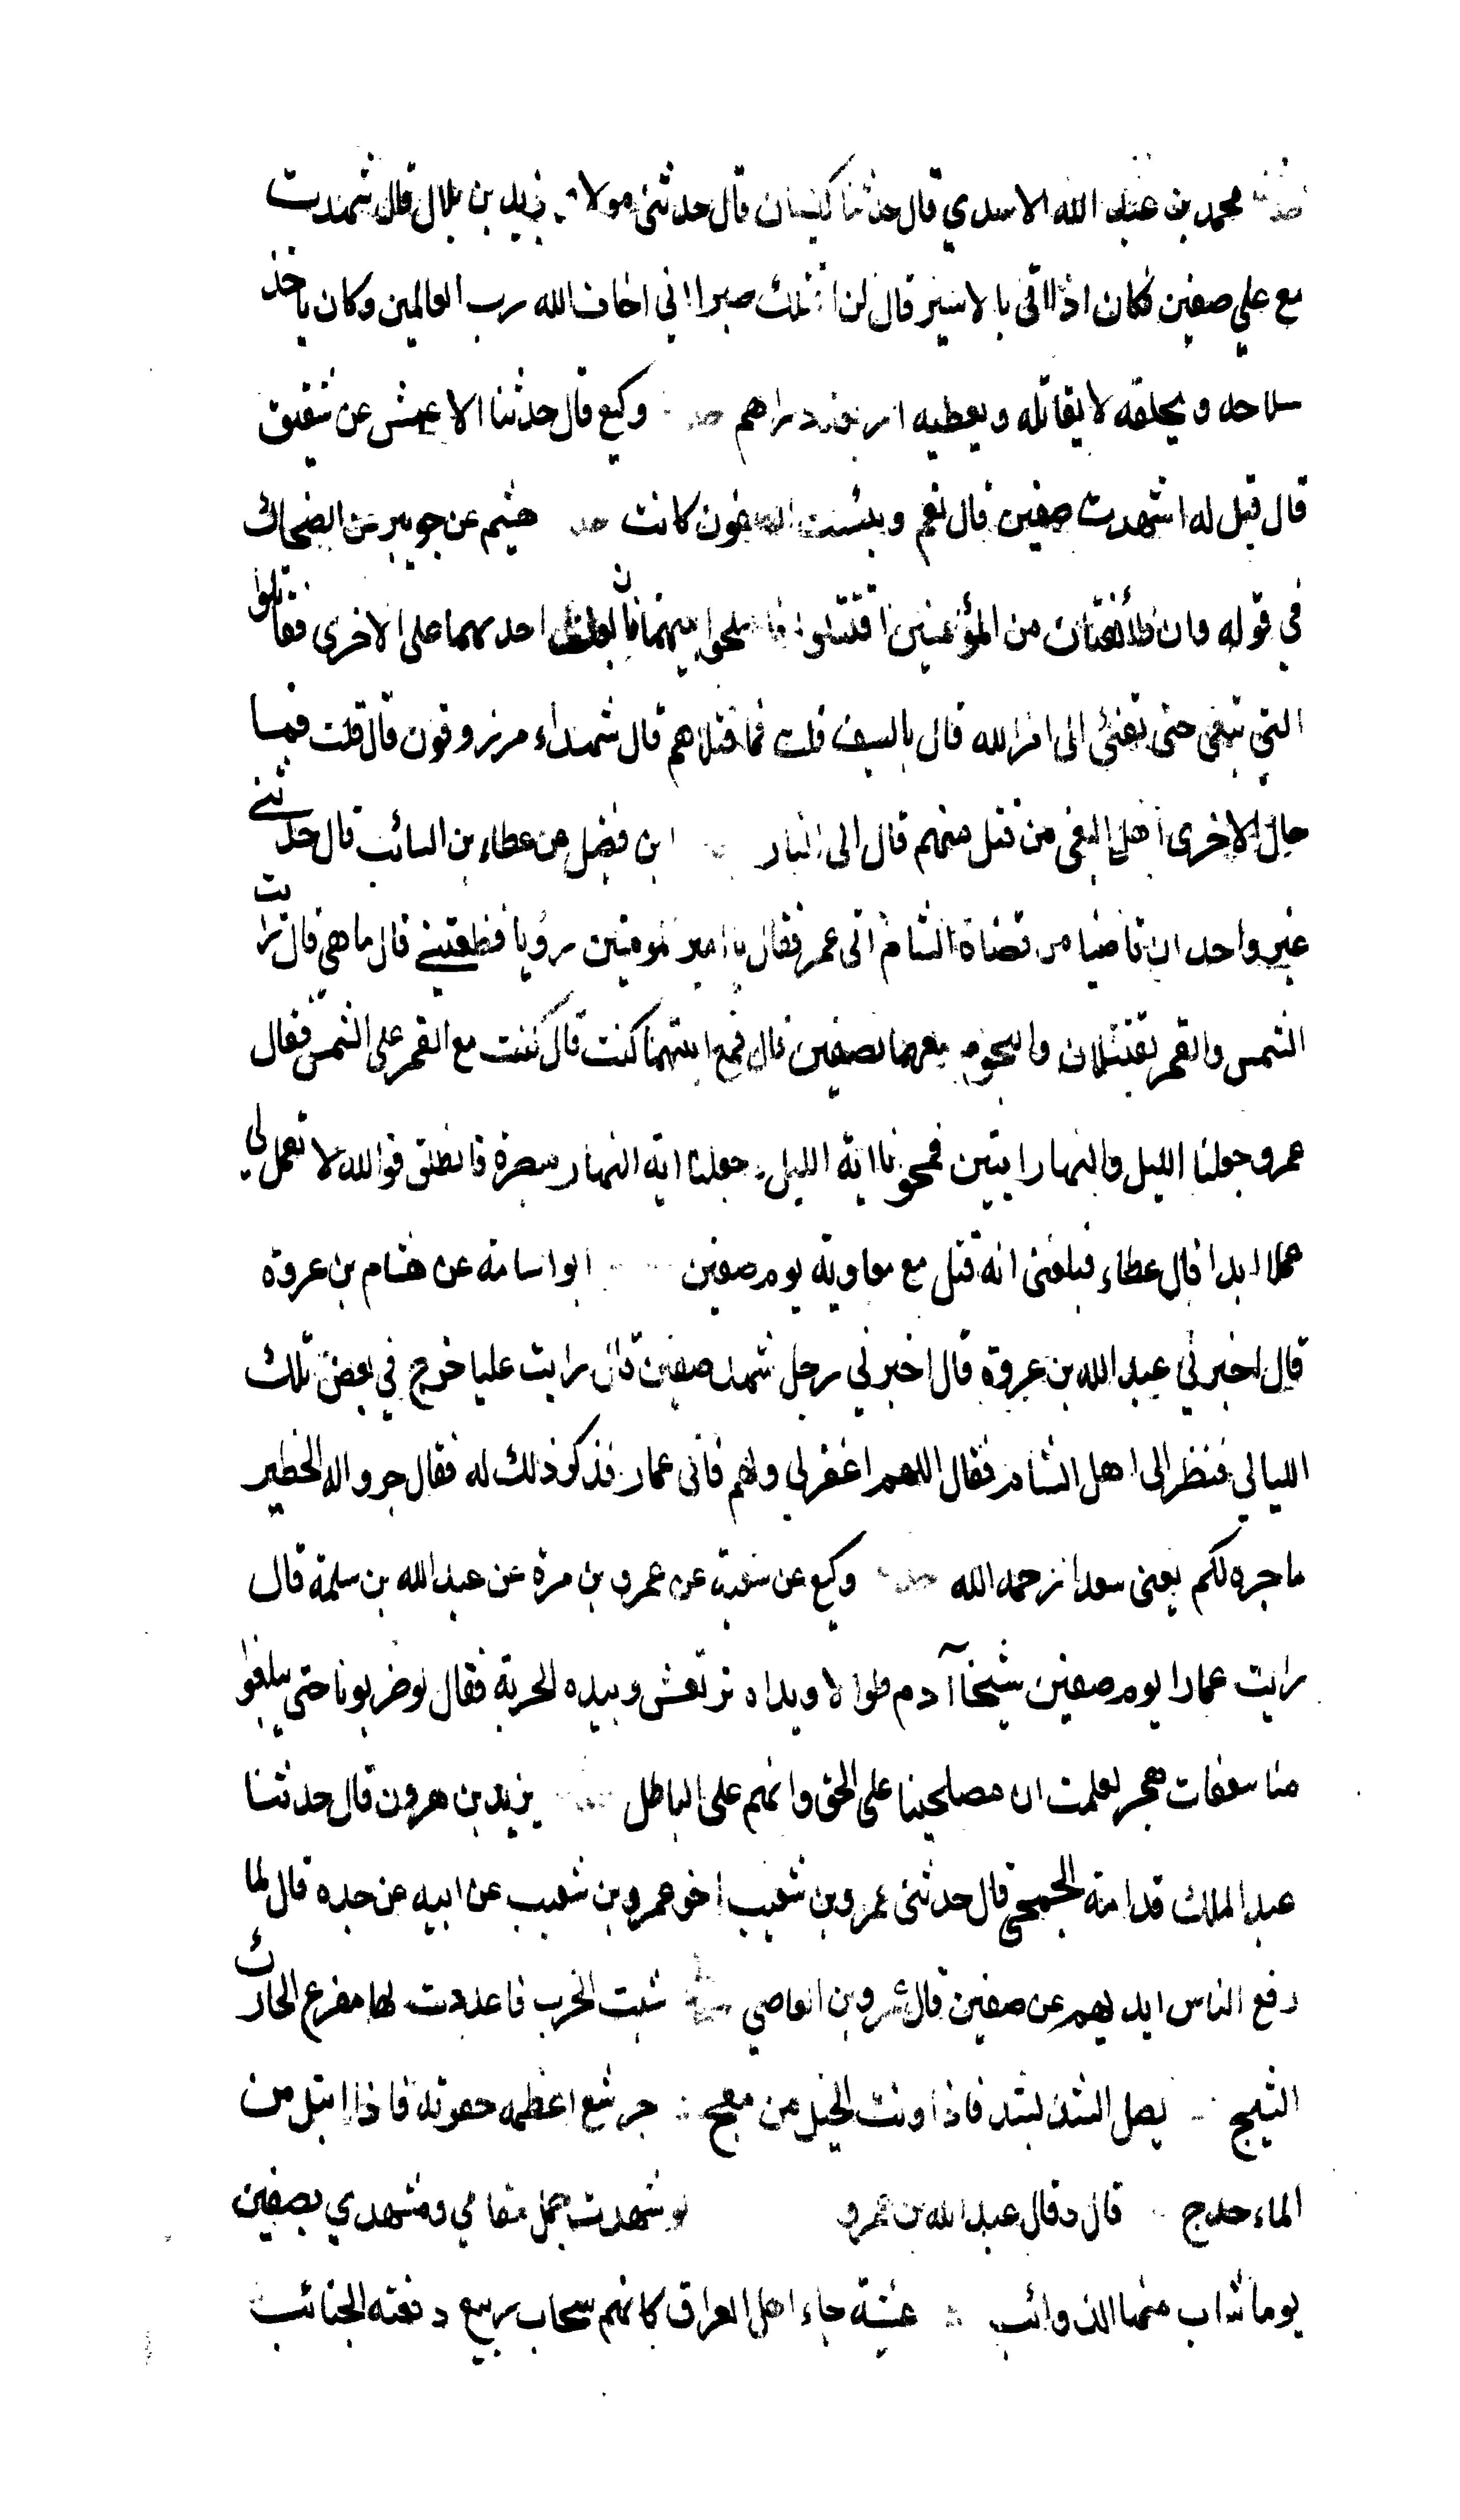 حدثنا محمد بن عبد الله الاسدي قال حدثنا كيسان قال حدثنى مولاى يزيد بن بلال قال شهدت
مع علي صفين فكان اذا اتى بالاسير قال لن اقتلك صبرا اني اخاف الله رب العالمين وكان ياخذ
سلاحه ويحلفه لا يقاتله ويعطيه اربعة دراهم حدثنا وكيع قال حدثنا الاعمش عن شقيق
قال قيل له اشهدت صفين قال نعم وبئست الصفون كانت حدثنا هشيم عن جويبر عن الضحاك
في قوله وان طائفتان من المؤمنين اقتتلوا فاصلحوا بينهما فان بغت احديهما على الاخرى فقاتلوا
التي تبغى حتى تفئ الى امر الله قال بالسيف قلت فما قتلاهم قال شهداء مرزوقون قال قلت فما
حال الاخرى اهل البغى من قتل منهم قال الى النار ابن فضيل عن عطاء بن السائب قال حدثنى
غير واحد ان قاضيا من قضاة الشام اتى عمر فقال يا امير المومنين رؤيا فظعتنى قال ما هى قال رايت
الشمس والقمر تقتتلان والنجوم معهما نصفين قال فمع ايتهما كنت قال كنت مع القمر على الشمس فقال
عمر وجعلنا الليل والنهار ايتين فمحونا اية الليل وجعلنا اية النهار مبصرة فانطلق فوالله لا تعمل لي
عملا ابدا قال عطاء فبلغنى انه قتل مع معاوية يوم صفين ابو اسامة عن هشام بن عروة
قال اخبرني عبد الله بن عروة قال اخبرني رجل شهد صفين قال رايت عليا خرج في بعض تلك
الليالي فنظر الى اهل الشام فقال اللهم اغفر لي ولهم فاتى عمار فذكر ذلك له فقال جروا له الخطير
ما جره لكم يعنى سعدا رحمه الله حدثنا وكيع عن شعبة عن عمرو بن مرة عن عبد الله بن سلمة قال
رايت عمارا يوم صفين شيخا آدم طوالا ويداه ترتعش وبيده الحربة فقال لو ضربونا حتى يبلغوا
منا سعفات هجر لعلمت ان مصلحينا على الحق وانهم على الباطل يزيد بن هرون قال حدثنا
عبد الملك قدامة الجمحي قال حدثنى عمرو بن شعيب اخو عمرو بن شعيب عن ابيه عن جده قال لما
رفع الناس ايديهم عن صفين قال عمرو بن العاصي شبت الحرب فاعددت لها مفرع الحارك
الثبج يصل الشد بشد فاذا ونت الخيل من معج جرشع اعظمه جفرته فاذا ابتل من
الماء حدج قال وقال عبد الله بن عمرو لو شهدت جمل مقامي ومشهدي بصفين
يوما شاب منها الذوائب عشية جاء اهل العراق كانهم سحاب ربيع دفعته الجنائب